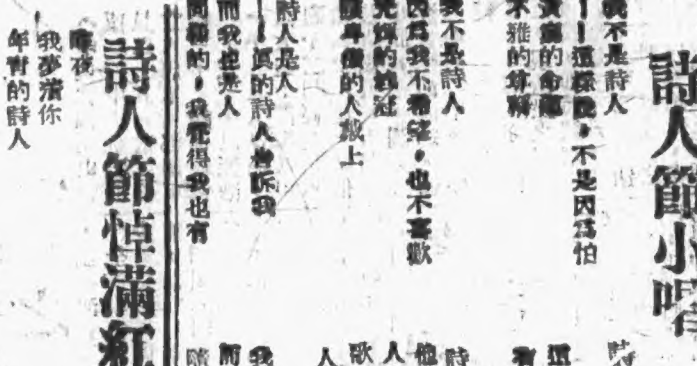 詩人節小唱
我不是詩人
——這樣說,不是因爲怕
的命運
不雅的尊稱
我不是詩人
因爲我不希望,也不喜歡
光輝的桂冠
的人獻上
詩人是人
——眞的詩人告訴我
而我也是人
同樣的,我覺得我也有
詩
這
有
詩
他
人
歌
人
我
而
詩人節悼滿紅
昨夜
我夢着你
年靑的詩人